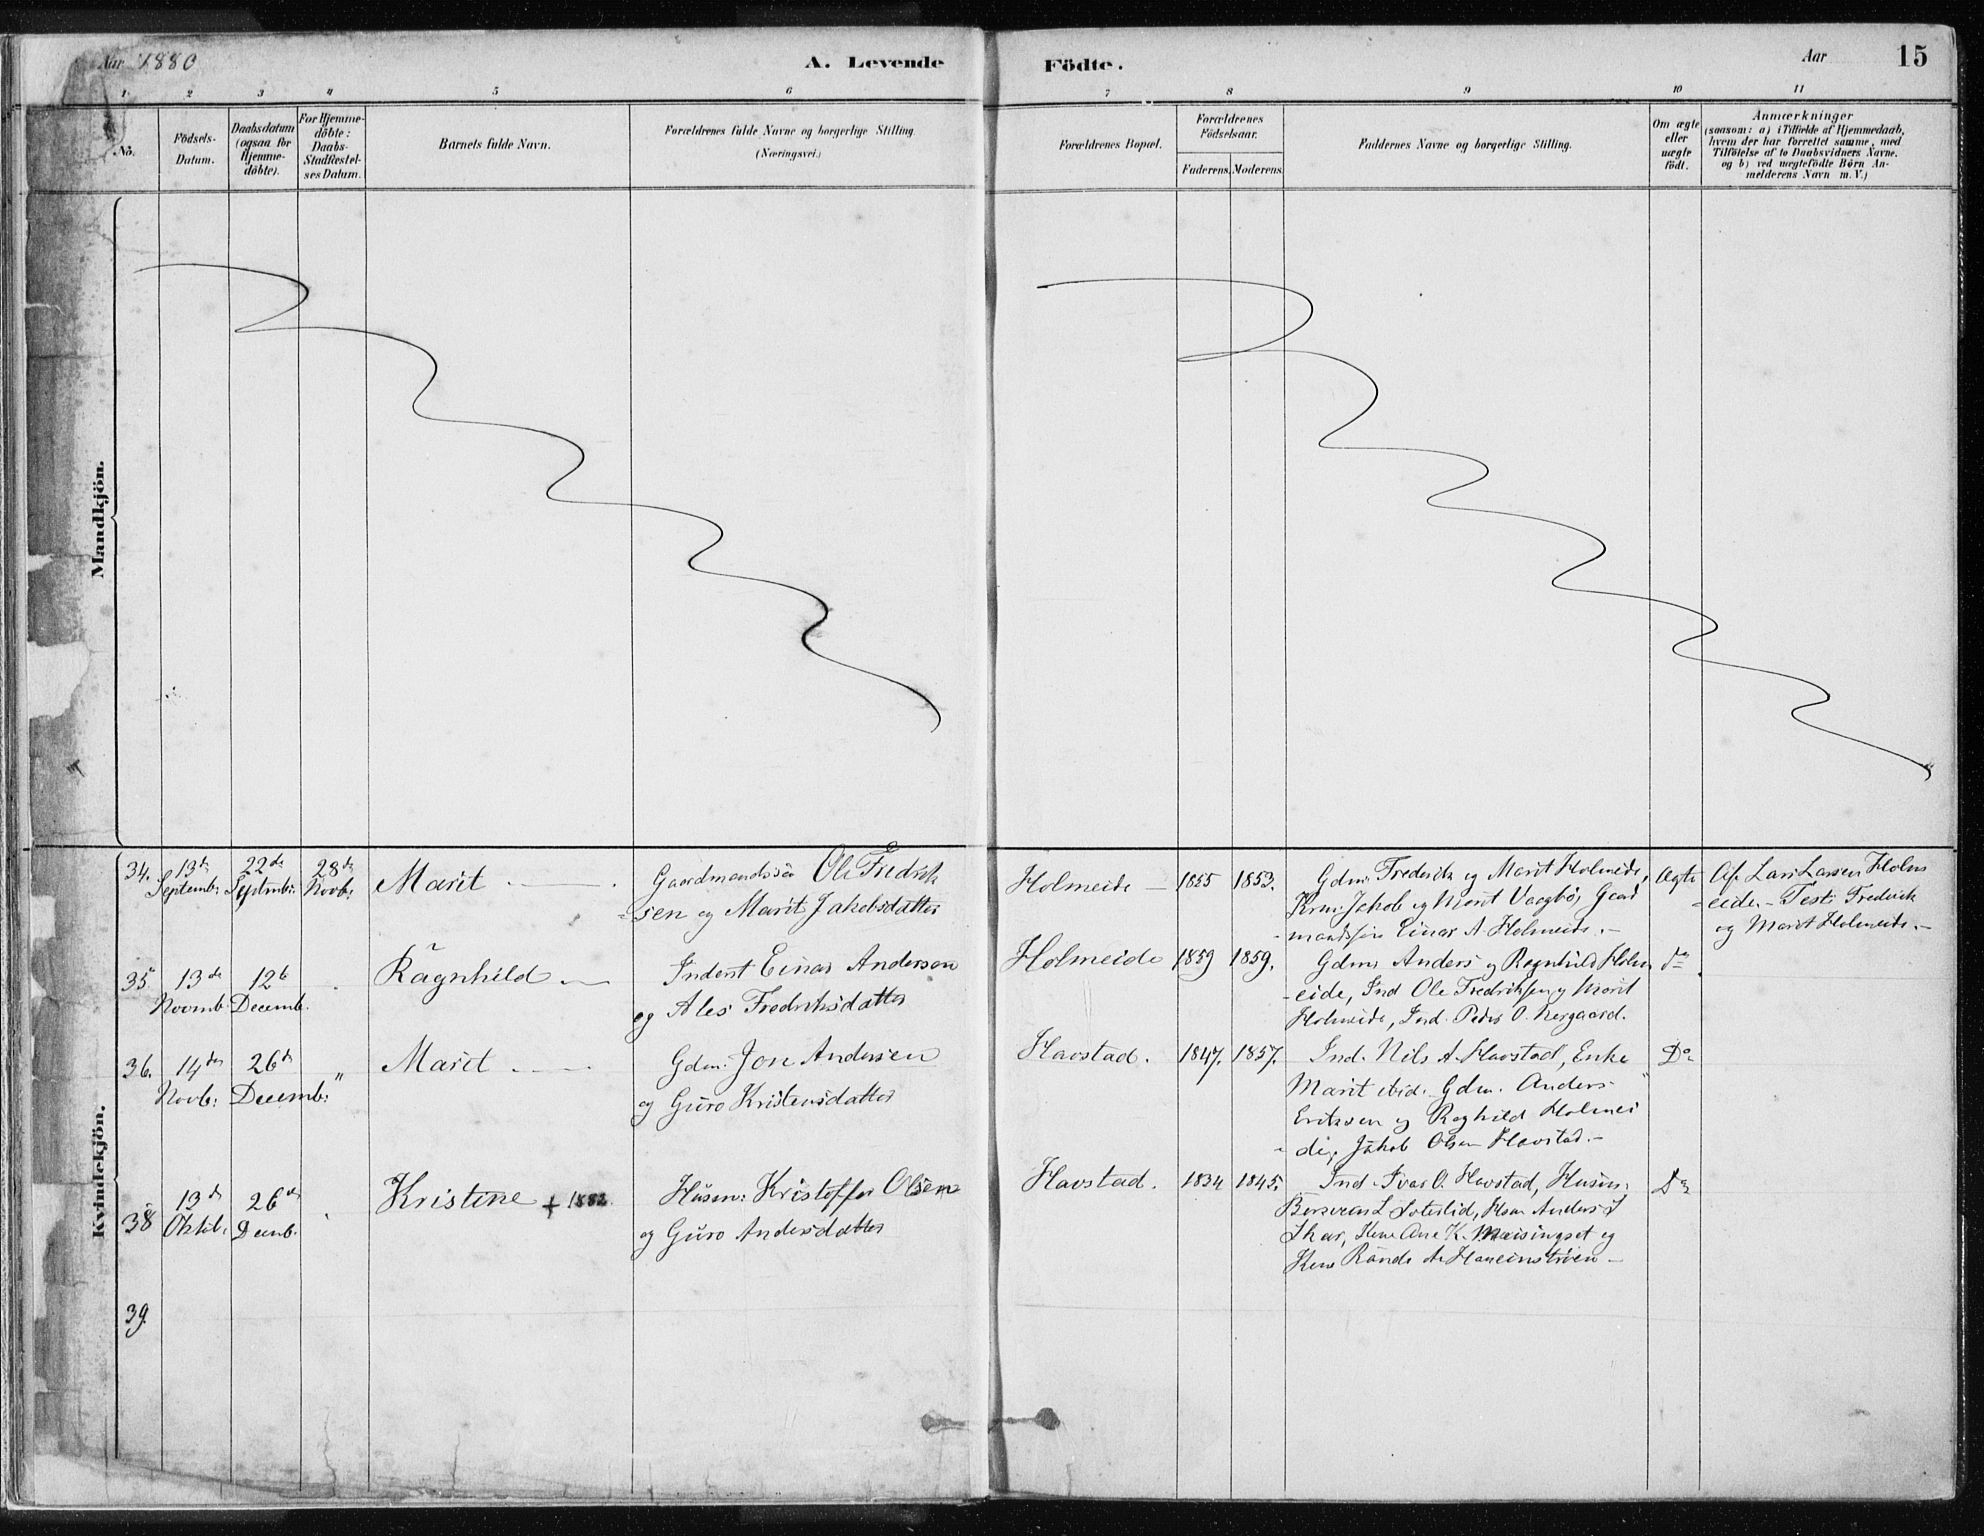 Aar 1880
A. Levende
Födte.
Aar
15
1. 2 3 4 5 6 7 8 9 10 11
No.
Födsels-
Datum.
Daabsdatum
(ogsaa for
Hjemme-
döbte).
For Hjemme-
döbte:
Daabs-
Stadfæstel-
ses Datum.
Barnets fulde Navn.
Forældrenes fulde Navne og borgerlige Stilling.
(Næringsvei.)
Forældrenes Bopæl.
Forældrenes
Födselsaar.
Faderens. Moderens.
Faddernes Navne og borgerlige Stilling.
Om ægte
eller
uægte
födt.
Anmærkninger
(saasom: a) i Tilfælde af Hjemmedaab,
hvem der har forrettet samme, med
Tilföielse af to Daabsvidners Navne.
og b) ved uægtefödte Börn An-
melderens Navn m. V.)
Mandkjön.
Kvindekjön.
34. 13de
Septemb:
22de
Septmbr:
28de
Novb:
Marit
Gaardmandssön Ole Fredrik
-sen og Marit Jakobsdatter
Holmeide
1855 1853.
Gdm: Frederik og Marit Holmeide,
Krm: Jakob og Marit Vaagbö, Gaard
-mandssön Einar A Holmeide.
Ægte
Af Lars Larsen Holm
-eide. - Test: Frederik
og Marit Holmeide.
35 13de
Novmb:
12te
Decemb.
Ragnhild
Inderst Einar Anderson
og Ales Fredriksdatter
Holmeide
1859 1859.
Gdm: Anders og Ragnhild Holm
-eide, Ind Ole Fredriksen og Marit
Holmeide, Ind. Peder O. Nergaard.
do
36. 14de
Novb:
26de
Decemb:
"
Marit
Gdm. Jon Andersen
og Guro Kristensdatter
Havstad.
1847. 1857.
Ind. Nils A. Havstad, Enke
Marit ibid. Gdm. Anders
Eriksen og Raghild Holmei
-de, Jakob Olsen Havstad.
Do
38 13de
Oktob:
26de
Decmb.
Kristine + 1882.
Husm: Kristoffer Olsen
og Guro Andersdatter
Havstad.
1834 1845.
Ind. Ivar O. Havstad, Husm:
L Anders I
Ane K. Meisingset og
Do
39.